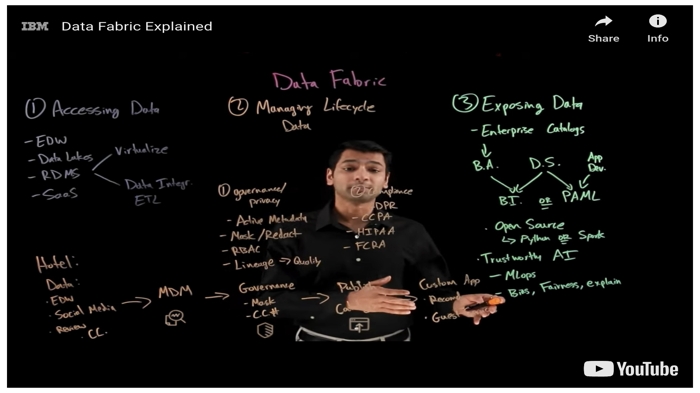 IBM Data Fabric Explained
Share
Info
Data Fabric
① Accessing Data
- EDW
- Data Lakes
- RDMS
- SaaS
Virtualize
Data Integr.
ETL
② Managing Lifecycle
Data
① governance/
privacy
- Active Metadata
- Mask/Redact
- RBAC
- Lineage → Quality
DPR
- CCPA
- HIPAA
- FCRA
③ Exposing Data
- Enterprise Catalogs
B.A.
D.S.
App
Dev.
BI. OR PAML
· Open Source
↳ Python OR Spark
· Trustworthy AI
- MLops
- Bias, Fairness, explain
Hotel:
Data:
EDW
· Social Media
· Review
· CC.
→ MDM →
Governance
- Mask
- CC#
→
Custom App
· Record
YouTube